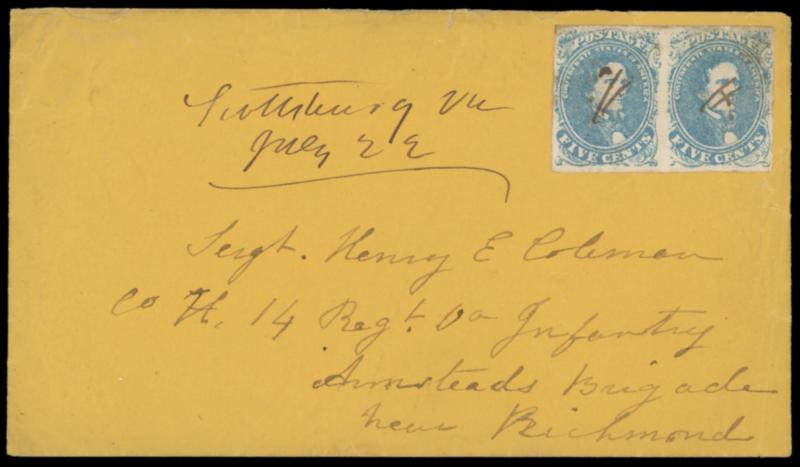 POSTAGE
CONFEDERATE STATES OF AMERICA
FIVE CENTS
POSTAGE
CONFEDERATE STATES OF AMERICA
FIVE CENTS
Scottsburg Va
July 22
Sergt. Henry E Coleman
Co H, 14 Regt. Va Infantry
Armsteads Brigade
near Richmond